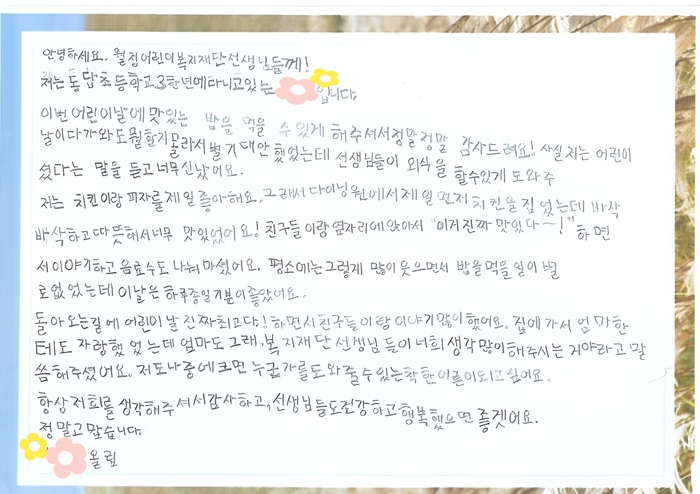 안녕하세요. 월점어린이복지재단선생님들께!
저는 동답초등학교 3학년에 다니고있는
입니다.
이번 어린이날에 맛있는 밥을 먹을 수 있게 해주셔서 정말정말 감사드려요! 사실 저는 어린이
날이 다가와도 뭘할지 몰라서 별 기대 안했었는데 선생님들이 외식을 할수있게 도와주
셨다는 말을 듣고 너무 신났어요.
저는 치킨이랑 피자를 제일 좋아해요. 그래서 다이닝원에서 제일 먼저 치킨을 집었는데 바삭
바삭하고 따뜻해서 너무 맛있었어요! 친구들이랑 옆자리에 앉아서 "이거 진짜 맛있다~!" 하면
서 이야기하고 음료수도 나눠 마셨어요. 평소에는 그렇게 많이 웃으면서 밥을 먹을 일이 별
로 없었는데 이날은 하루종일 기분이 좋았어요.
돌아오는길에 어린이날 진짜 최고다! 하면서 친구들이랑 이야기 많이 했어요. 집에 가서 엄마한
테도 자랑했었는데 엄마도 그래, 복지재단 선생님들이 너희 생각 많이 해주시는 거야라고 말
씀해주셨어요. 저도 나중에 크면 누군가를 도와줄 수 있는 착한 어른이 되고 싶어요.
항상 저희를 생각해주셔서 감사하고, 선생님들도 건강하고 행복했으면 좋겟어요.
정말 고맙습니다.
올림